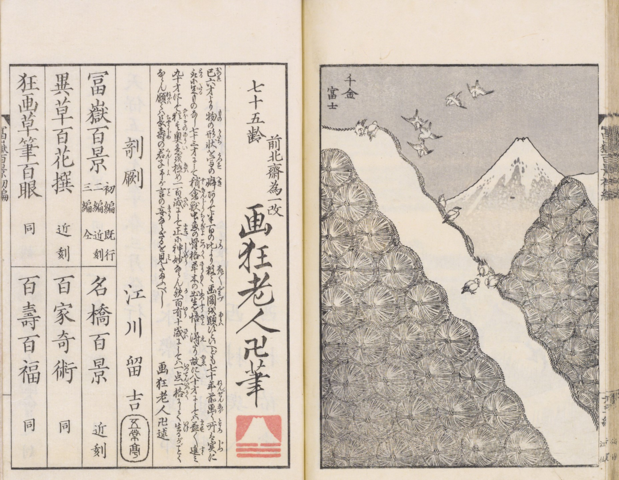 千金
富士
七十五齢
前北斎為一改
画狂老人卍筆
己六才より物の形状を写の癖ありて半百の比より数々画図を顕すといへども七十年前画く所は実に
取に足ものなし七十三才にして稍禽獣虫魚の骨格草木の出生を悟し得たり故に八十才にしては益々進み
九十才にして猶其奥意を極め一百歳にして正に神妙ならん与百有十歳にしては一点一格にして生るがごとく
ならん願くは長寿の君子予が言の妄ならざるを見たまふべし 画狂老人卍述
剞劂 江川留吉 五常亭
冨嶽百景 初編 既行 二編 近刻 三編 仝 名橋百景 近刻
異草百花撰 近刻 百家奇術 同
狂画草筆百眼 同 百壽百福 同